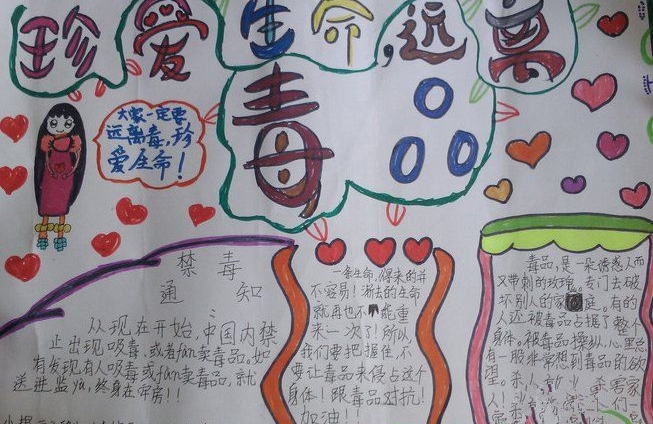 珍爱生命,远离
毒品
大家一定要
远离毒,珍
爱生命!
禁毒
通知
从现在开始,中国内禁
止出现吸毒,或者fan卖毒品。如
有发现有人吸毒或fan卖毒品,就
送进监yù,终身在牢房!!
一条生命,得来的并
不容易!逝去的生命
就再也不能重
来一次了!所以,
我们要把握住,不
要让毒品来侵占这个
身体!跟毒品对抗!
加油!!
毒品,是一朵诱惑人而
又带刺的玫瑰。专门去破
坏别人的家庭。有的
人还被毒品占据了整个
身体。被毒品操纵,心里总
有一股非常想到毒品的欲
望。杀人